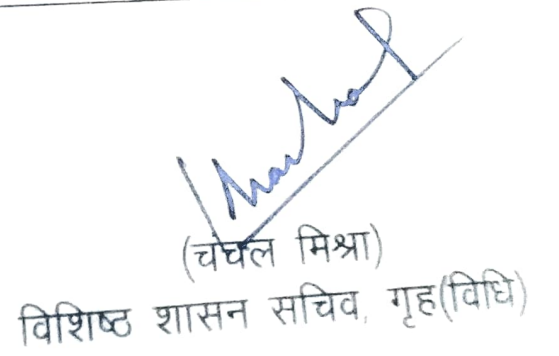 (चंचल मिश्रा)
विशिष्ठ शासन सचिव, गृह(विधि)